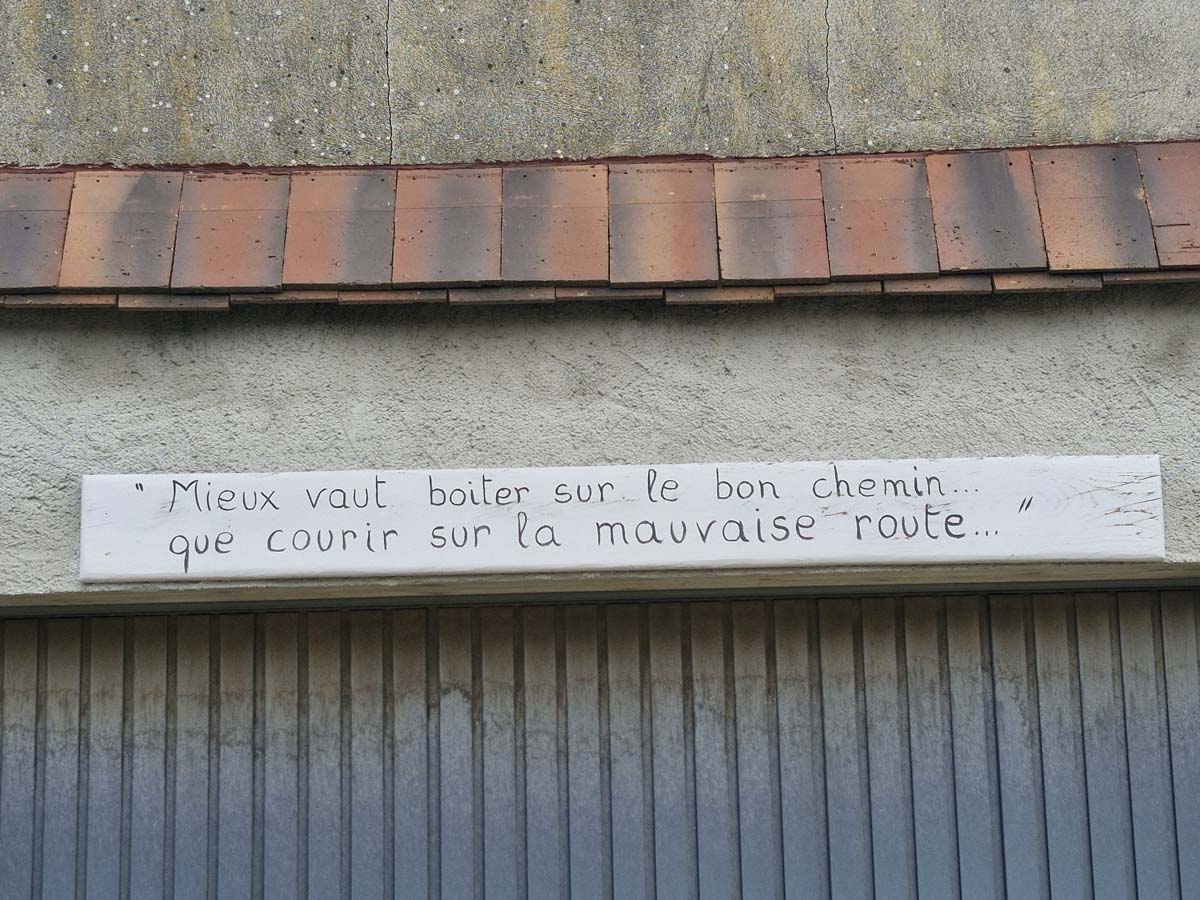 " Mieux vaut boiter sur le bon chemin...
que courir sur la mauvaise route... "